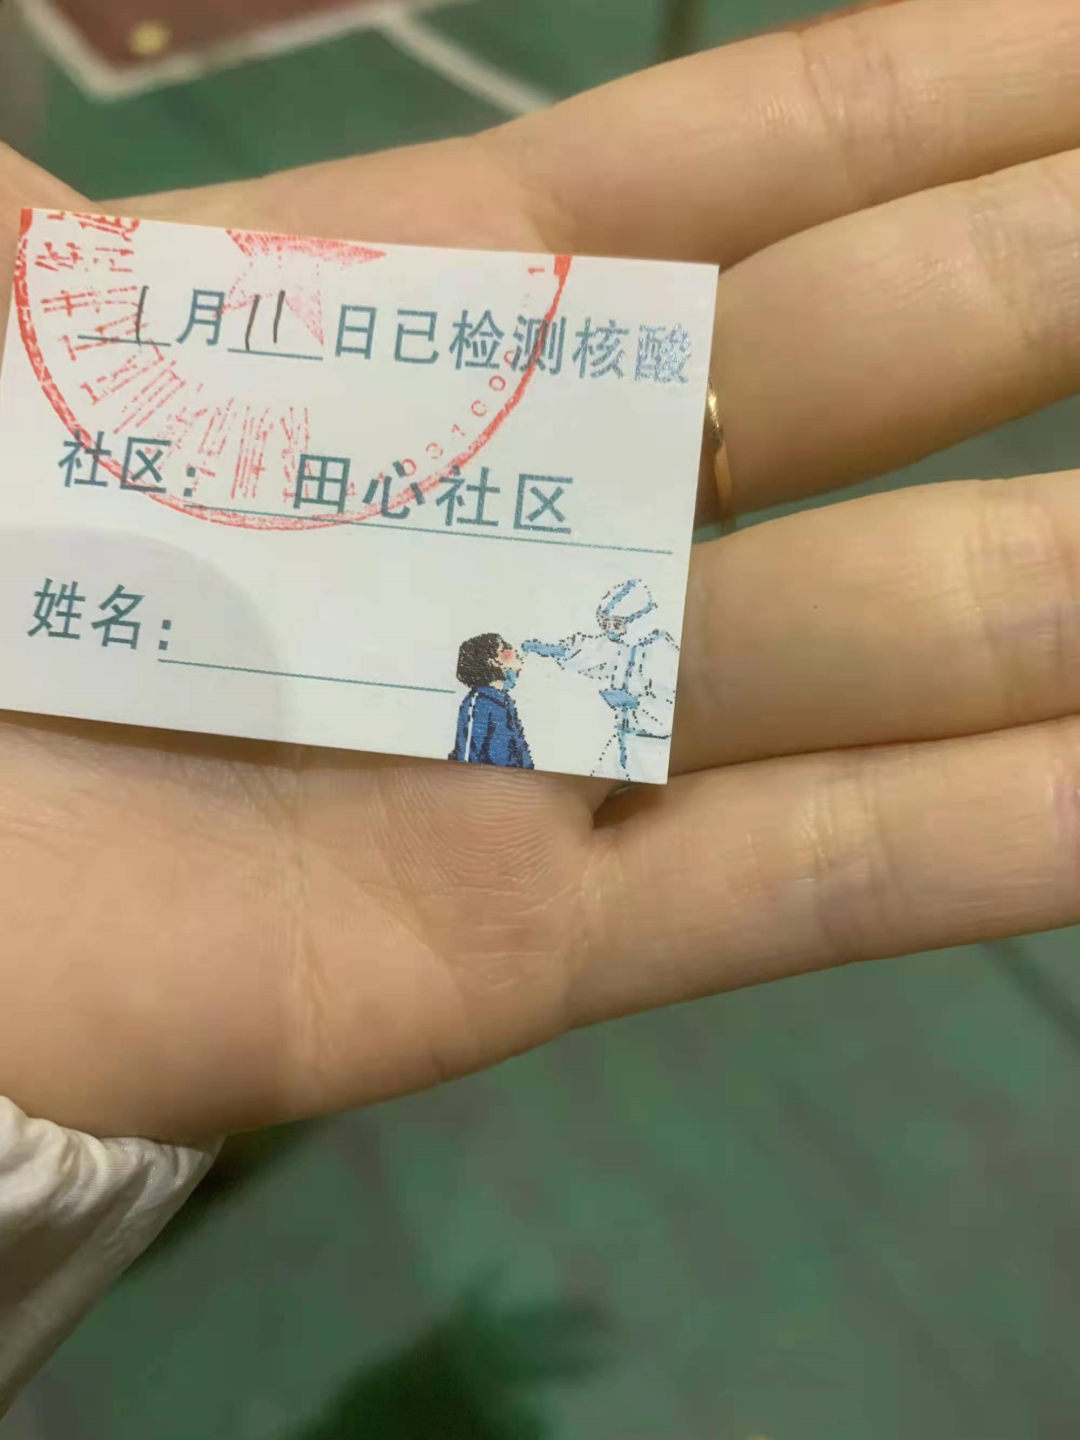 1月11日已检测核酸
社区：田心社区
姓名：